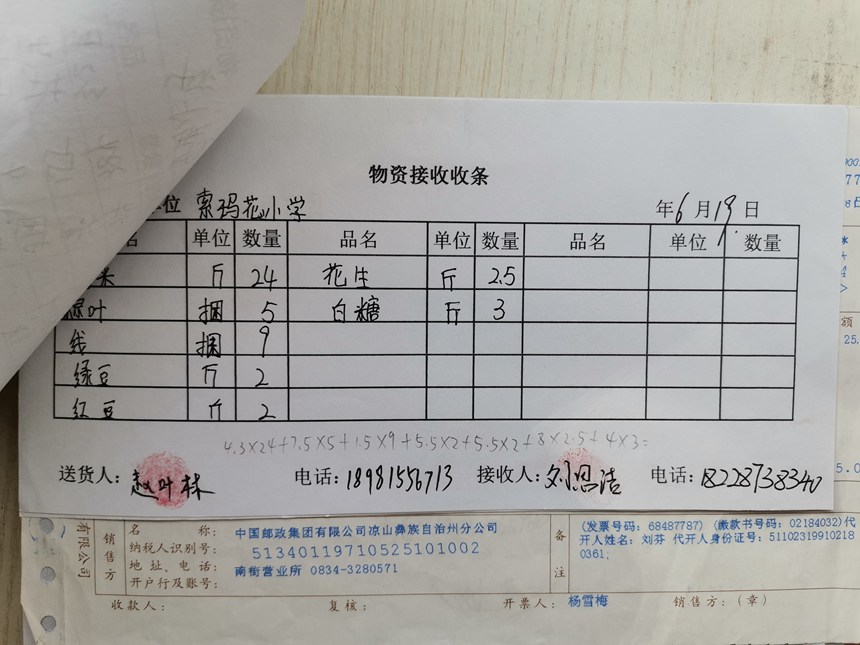 物资接收收条
单位 索玛花小学 年6月19日
名 单位 数量 品名 单位 数量 品名 单位 数量
米 斤 24 花生 斤 2.5
粽叶 捆 5 白糖 斤 3
线 捆 9
绿豆 斤 2
红豆 斤 2
4.3×24+7.5×5+1.5×9+5.5×2+5.5×2+8×2.5+4×3=
送货人: 赵叶林 电话: 18981556713 接收人: 刘思洁 电话: 18228738340
有限公司
销售方
名 称: 中国邮政集团有限公司凉山彝族自治州分公司
纳税人识别号: 51340119710525101002
地址、电话: 南街营业所 0834-3280571
开户行及账号:
备注
(发票号码: 68487787) (缴款书号码: 02184032)代
开人姓名: 刘芬 代开人身份证号: 51102319910218
0361;
收款人: 复核: 开票人: 杨雪梅 销售方: (章)
额
25.